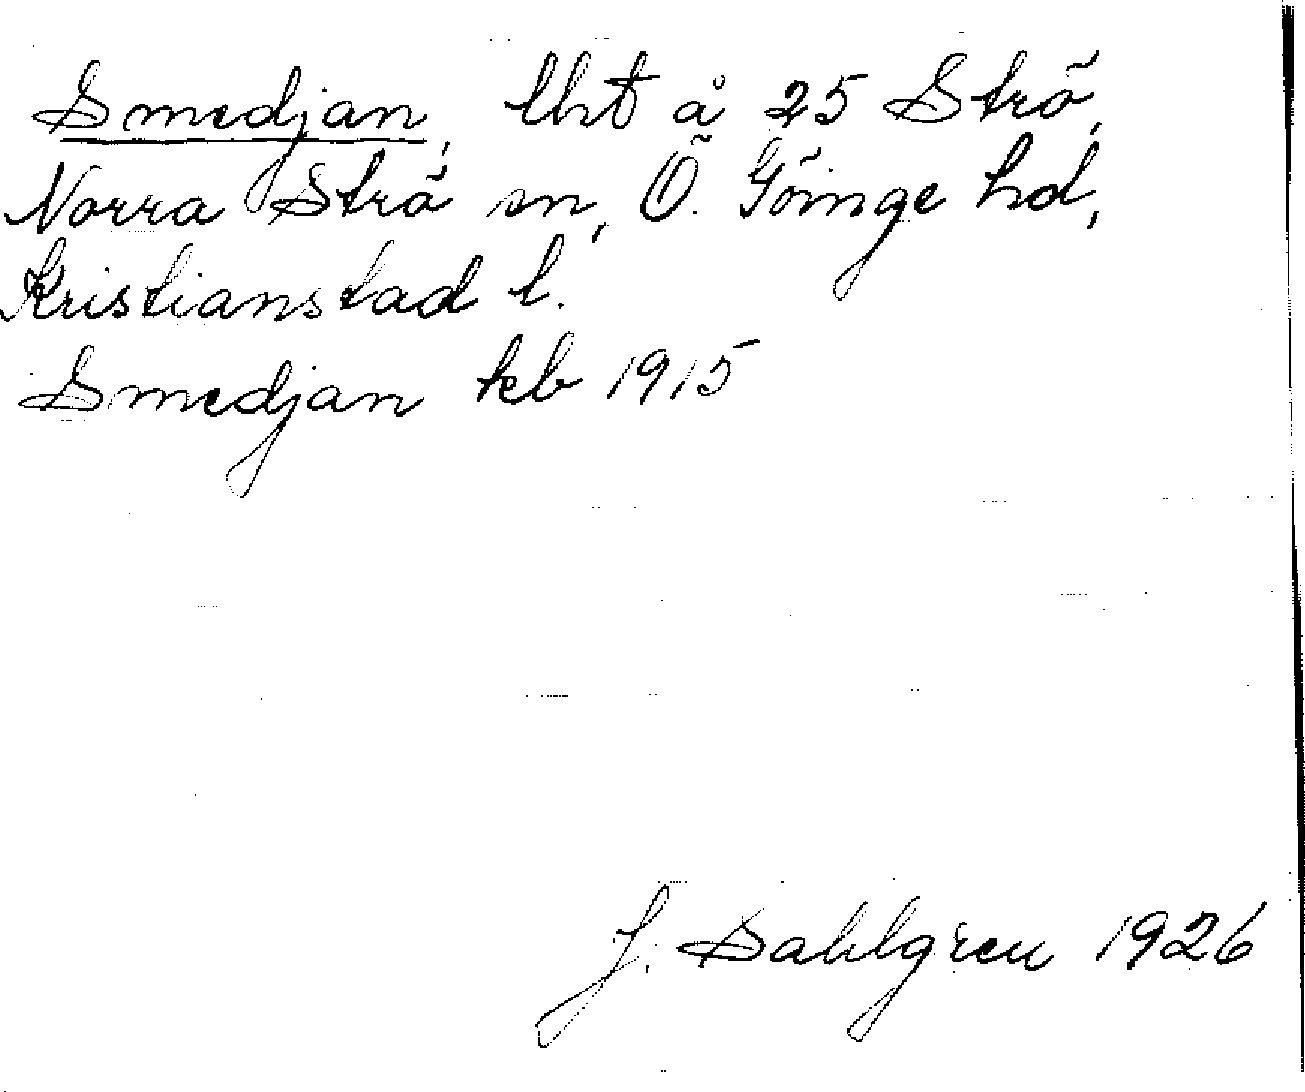 Smedjan, lht å 25 Strö,
Norra Strö sn, Ö. Göinge hd,
Kristianstad l.
Smedjan teb 1915
J. Dahlgren 1926